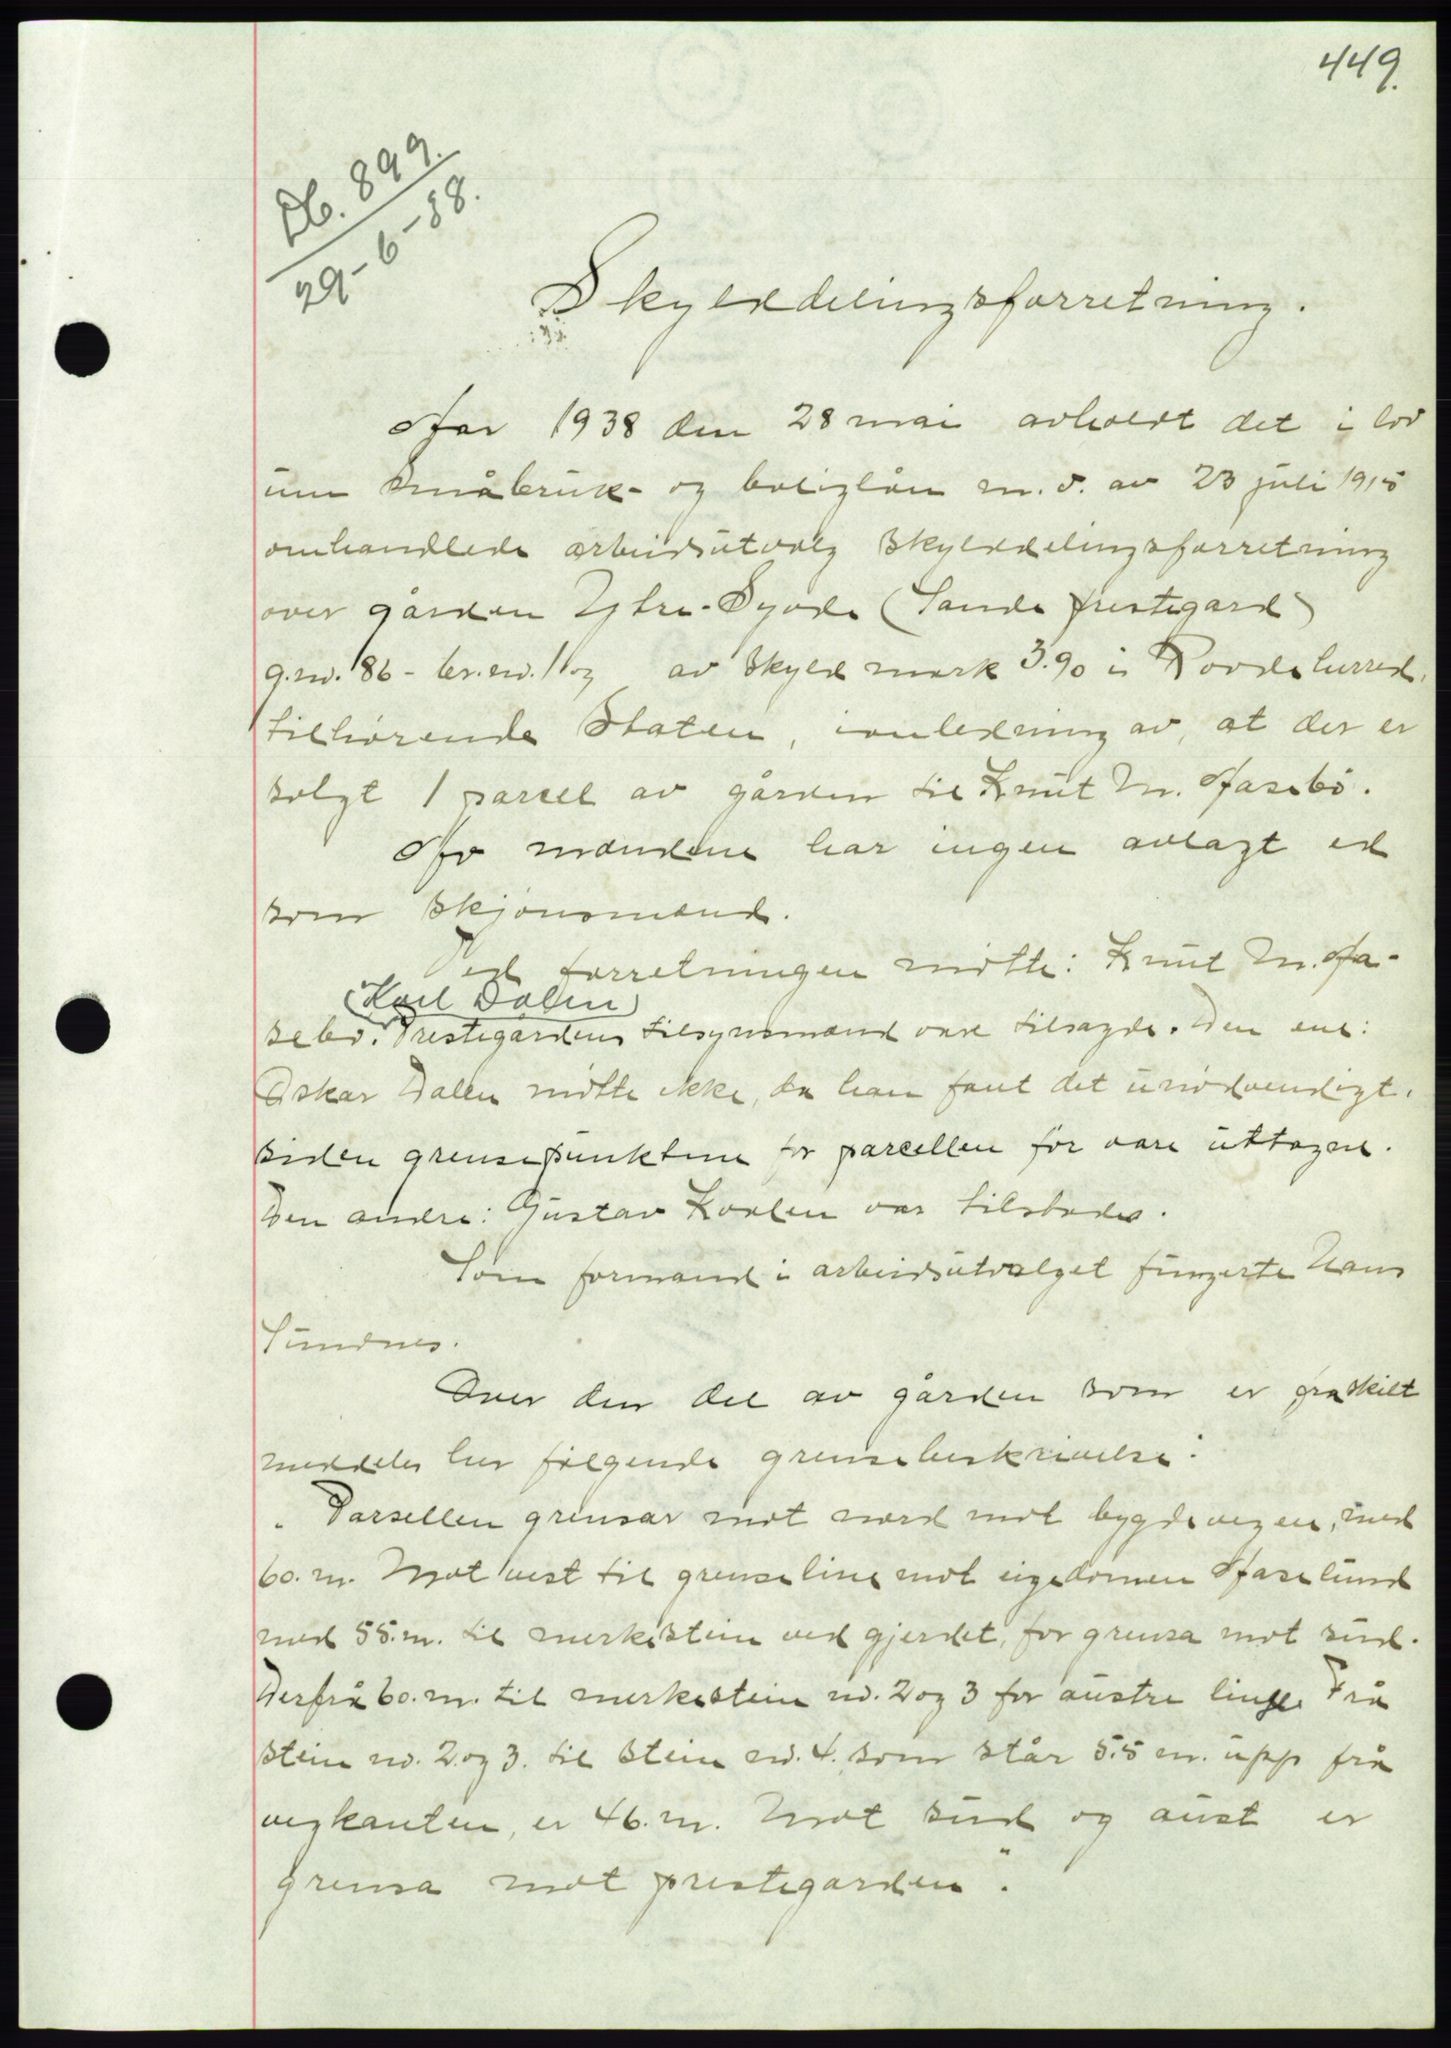 449.
Db. 899.
29-6-38.
Skylddelingsforretning.
Aar 1938 den 28 mai avholdt det i lov
um småbruk- og boliglån m. v. av 23 juli 1915
omhandlede arbeidsutvalg skylddelingsforretning
over gården Ytre-Syvde (Sande prestegard)
g.nr. 86 - br.nr. 1 og av skyld mark 3.90 i Rovde herred,
tilhørende Staten, i anledning av, at der er
solgt 1 parcel av gården til Knut M. Aasebö.
Av mændene har ingen avlagt ed
som skjönsmænd.
Ved forretningen mötte: Knut M. Aa-
(Karl Dalen)
sebö. Prestegårdens tilsynsmænd vare tilsagde. Den ene:
Oskar Dalen mötte ikke, da han fant det unödvendigt,
siden grensepunktene for parcellen för vare uttagne.
Den andre: Gustav Kvalen var tilstades.
Som formand i arbeidsutvalget fungerte Hans
Sundnes.
Over den del av gården som er fraskilt
meddeles her fölgende grensebeskrivelse:
"Parsellen grensar mot nord mot bygdevegen, med
60. m. Mot vest til grenseline mot eigedomen Aaselund
med 55. m. til merkestein ved gjerdet, for grensa mot sud.
Derfrå 60. m. til merkestein nr. 2 og 3 for austre line. Frå
stein nr. 2. og 3. til stein nr. 4. som står 5.5 m. upp frå
vegkanten, er 46. m. Mot sud og aust er
grensa mot prestegarden".